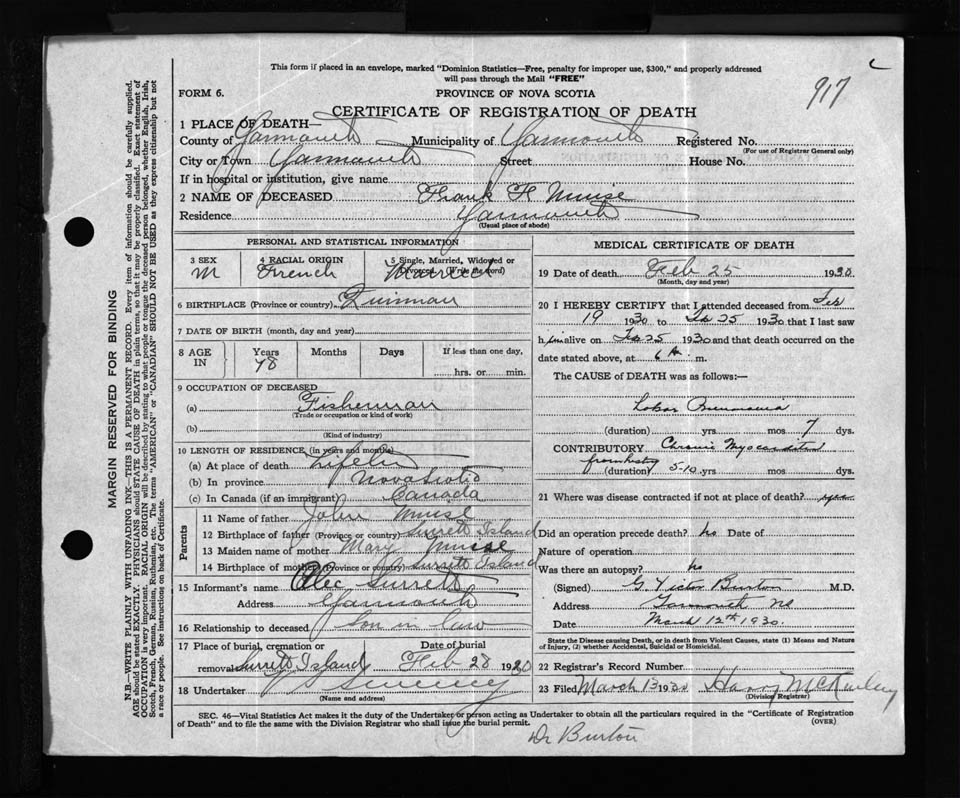 This form if placed in an envelope, marked "Dominion Statistics—Free, penalty for improper use, $300," and properly addressed
will pass through the Mail "FREE"
917
FORM 6.
PROVINCE OF NOVA SCOTIA
CERTIFICATE OF REGISTRATION OF DEATH
1 PLACE OF DEATH—
County of Yarmouth Municipality of Yarmouth Registered No.
(For use of Registrar General only)
City or Town Yarmouth Street House No.
If in hospital or institution, give name
2 NAME OF DECEASED Frank H Muise
Residence Yarmouth
(Usual place of abode)
MARGIN RESERVED FOR BINDING
N.B.—WRITE PLAINLY WITH UNFADING INK—THIS IS A PERMANENT RECORD. Every item of information should be carefully supplied.
AGE should be stated EXACTLY. PHYSICIANS should STATE CAUSE OF DEATH in plain terms, so that it may be properly classified. Exact statement of
OCCUPATION is very important. RACIAL ORIGIN will be described by stating to what people or tongue the deceased person belonged, whether English, Irish,
Scotch, French, German, Russian, Ruthenian, etc. The terms "AMERICAN" or "CANADIAN" SHOULD NOT BE USED as they express citizenship but not
a race or people. See instructions on back of Certificate.
PERSONAL AND STATISTICAL INFORMATION
3 SEX
M
4 RACIAL ORIGIN
French
5 Single, Married, Widowed or
Divorced (Write the word)
Married
6 BIRTHPLACE (Province or country) Quinnan
7 DATE OF BIRTH (month, day and year)
8 AGE
IN
Years
78
Months
Days
If less than one day,
hrs. or min.
9 OCCUPATION OF DECEASED
(a) Fisherman
(Trade or occupation or kind of work)
(b)
(Kind of industry)
10 LENGTH OF RESIDENCE (in years and months)
(a) At place of death Lifetime
(b) In province Nova Scotia
(c) In Canada (if an immigrant) Canada
Parents
11 Name of father John Muise
12 Birthplace of father (Province or country) Surrett Island
13 Maiden name of mother Mary Muise
14 Birthplace of mother (Province or country) Surrett Island
15 Informant's name Alec Surrett
Address Yarmouth
16 Relationship to deceased Son in law
17 Place of burial, cremation or Date of burial
removal Surrett Island Feb 28 1930
18 Undertaker Sweeney
(Name and address)
MEDICAL CERTIFICATE OF DEATH
19 Date of death Feb 25 1930
(Month, day and year)
20 I HEREBY CERTIFY that I attended deceased from Feb
19 1930 to Feb 25 1930 that I last saw
him alive on Feb 25 1930 and that death occurred on the
date stated above, at 6 A. m.
The CAUSE of DEATH was as follows:—
Lobar Pneumonia
(duration) yrs mos 7 dys.
CONTRIBUTORY Chronic Myocarditis
from history
(duration) 5-10 yrs mos dys.
21 Where was disease contracted if not at place of death?
Did an operation precede death? no Date of
Nature of operation
Was there an autopsy? no
(Signed) G. Victor Burton M.D.
Address Yarmouth NS
Date March 12th 1930.
State the Disease causing Death, or in death from Violent Causes, state (1) Means and Nature
of Injury, (2) whether Accidental, Suicidal or Homicidal.
22 Registrar's Record Number
23 Filed March 13 1930 Harry McKinley
(Division Registrar)
SEC. 46—Vital Statistics Act makes it the duty of the Undertaker or person acting as Undertaker to obtain all the particulars required in the "Certificate of Registration
of Death" and to file the same with the Division Registrar who shall issue the burial permit.
(OVER)
Dr Burton